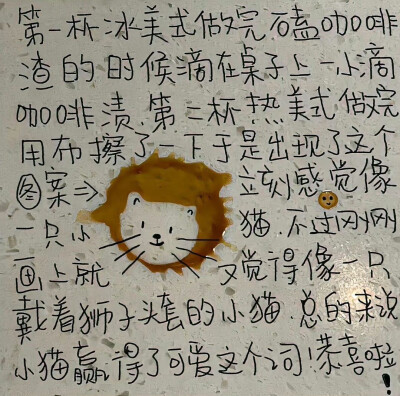 第一杯冰美式做完磕咖啡
渣的时候滴在桌子上一小滴
咖啡渍.第二杯热美式做完
用布擦了一下于是出现了这个
图案⇒立刻感觉像
一只小猫.不过刚刚
画上就又觉得像一只
戴着狮子头套的小猫.总的来说
小猫赢得了可爱这个词!恭喜啦!